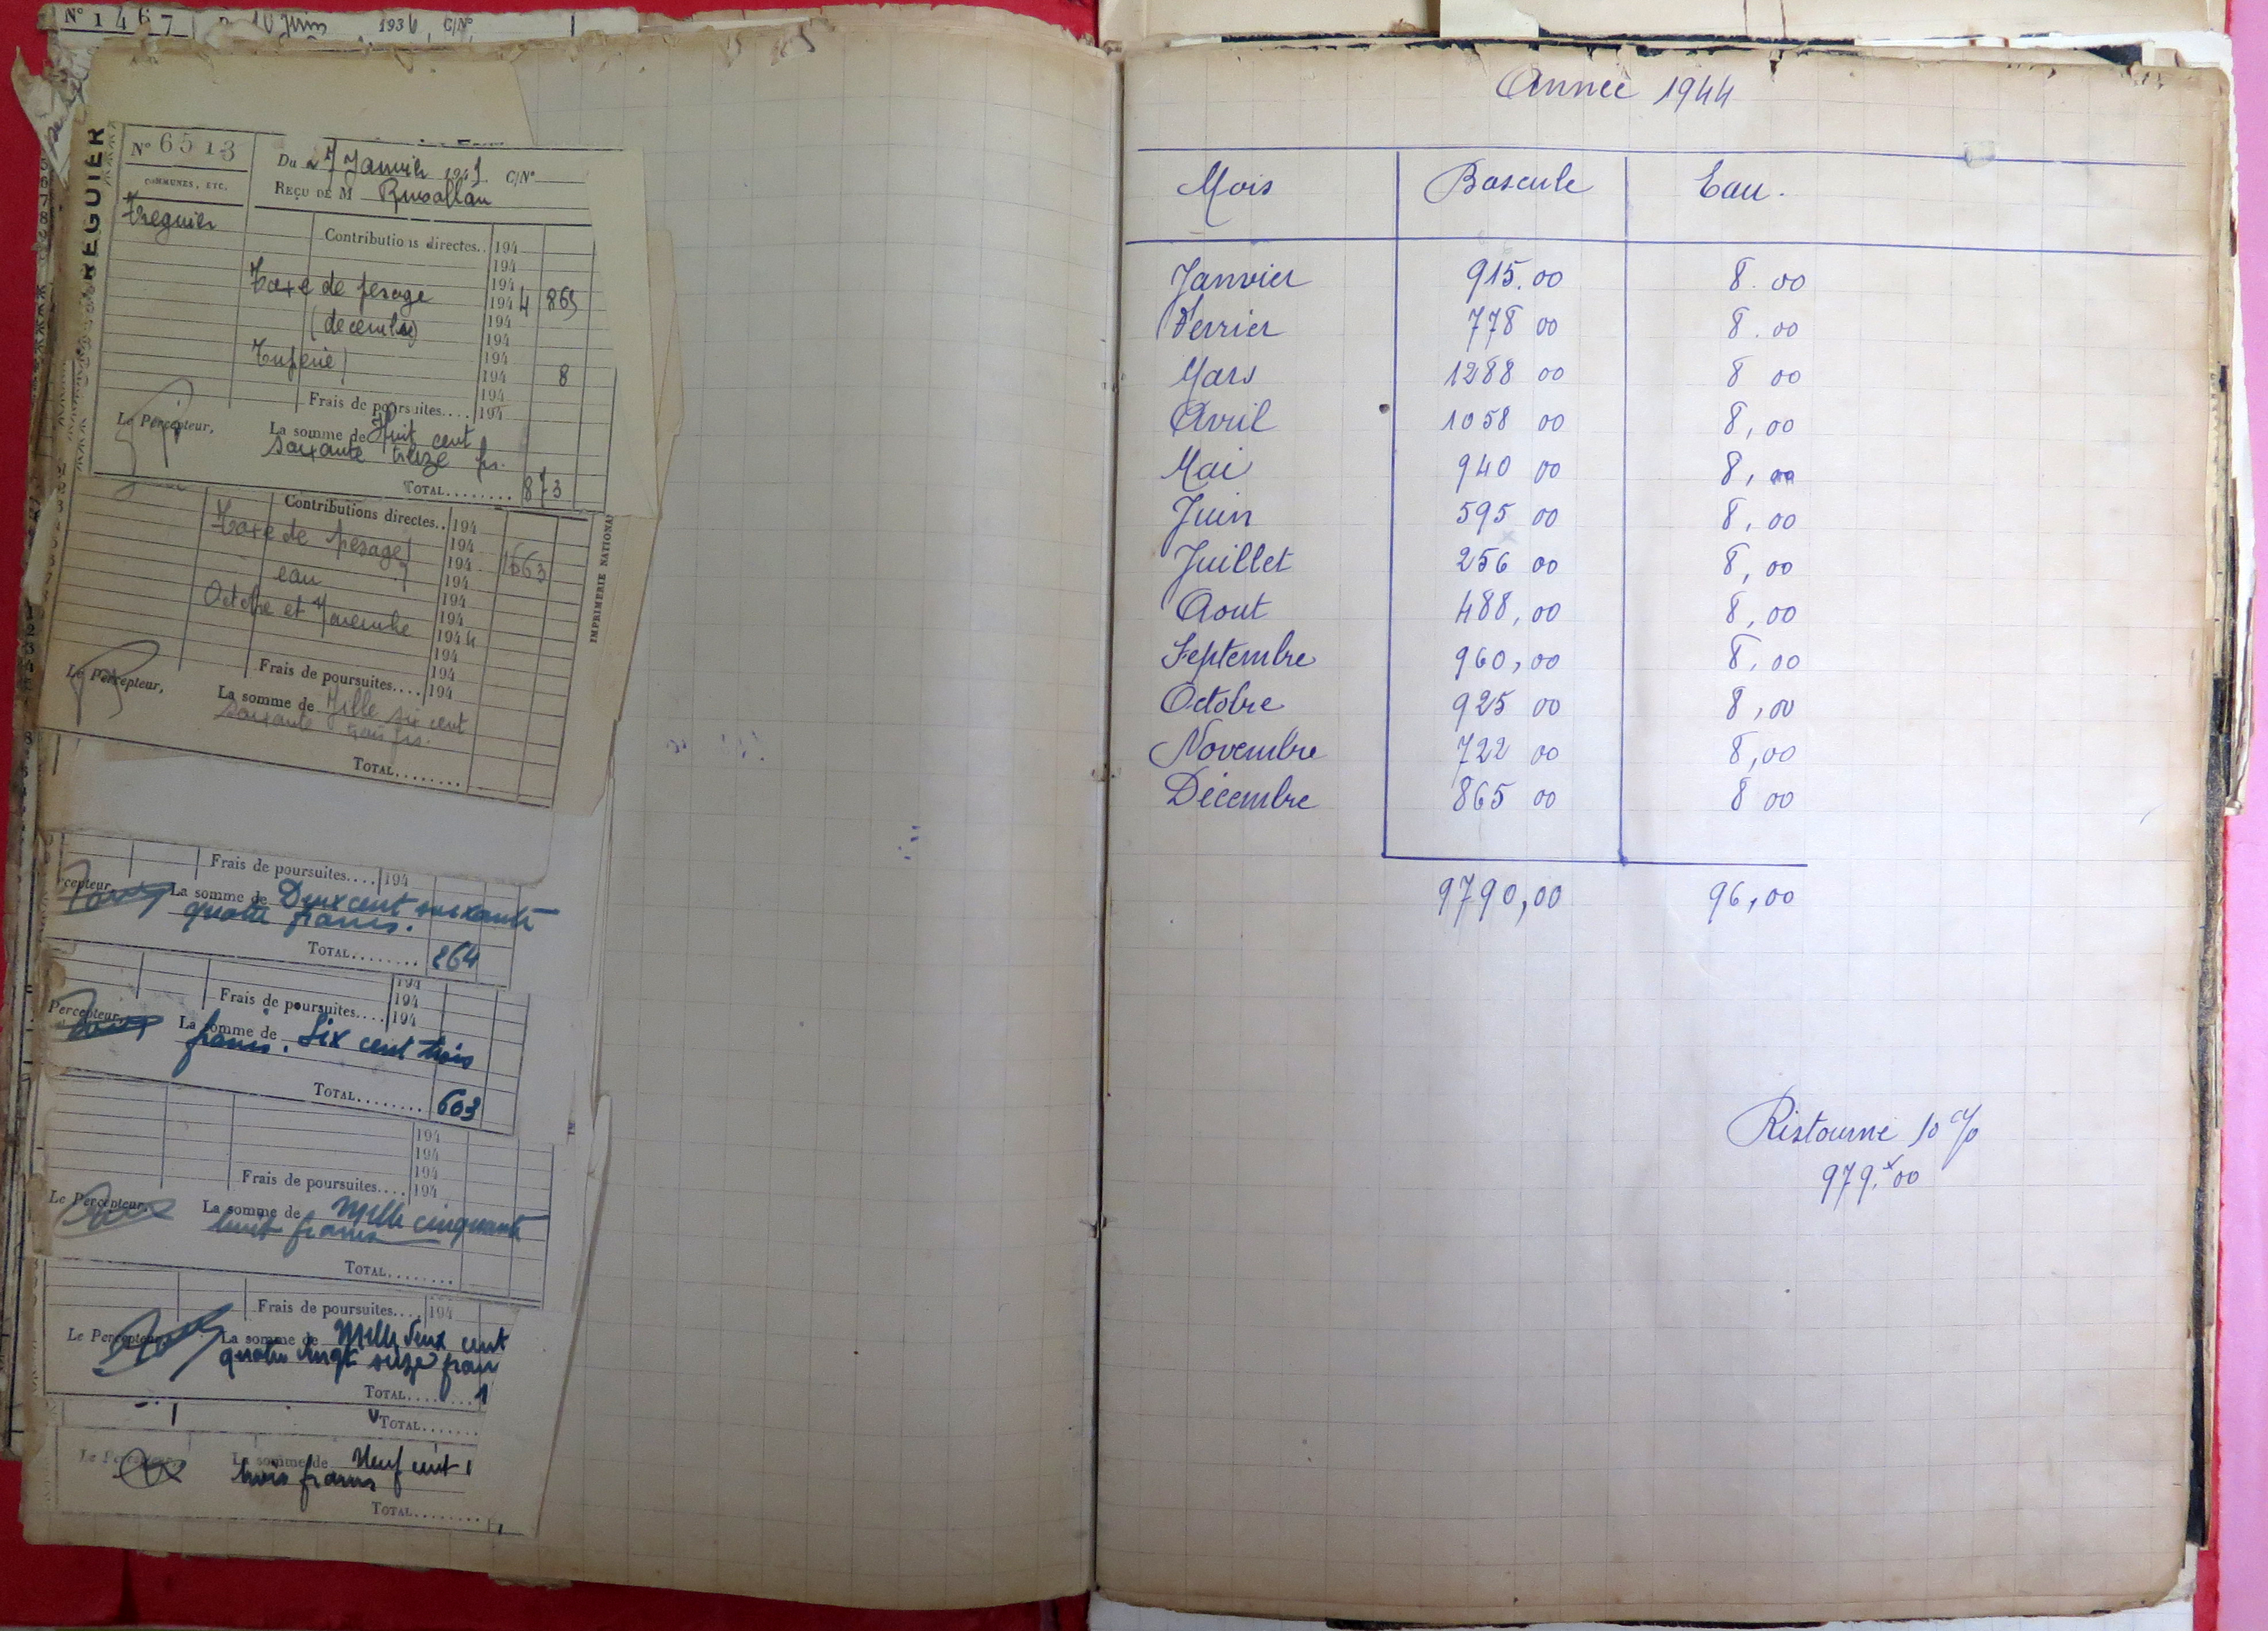 N° 1467 10 Juin 1936, C/N°
REGUIER
N° 6513
Du 27 Janvier 1945 C/N°
COMMUNES, ETC.
REÇU DE M
Treguier
Contributions directes.. 194
194
194
Taxe de pesage 194 4 865
(decembre) 194
194
194
194 8
194
Frais de poursuites.... 194
Le Percepteur,
La somme de Huit cent
soixante treize frs.
TOTAL........ 873
Contributions directes.. 194
Taxe de pesage 194
194 1663
eau 194
194
Octobre et Novembre 194
194 4
194
194
Frais de poursuites.... 194
Le Percepteur,
La somme de Mille six cent
soixante trois frs.
TOTAL........
IMPRIMERIE NATIONA
Frais de poursuites.... 194
rcepteur,
La somme de Deux cent soixante
quatre francs.
TOTAL........ 264
194
194
Frais de poursuites.... 194
Percepteur,
La somme de Six cent trois
francs.
TOTAL........ 603
194
194
194
Frais de poursuites.... 194
Le Percepteur,
La somme de Mille cinquante
huit francs
TOTAL........
Frais de poursuites.... 194
Le Percepteur,
La somme de Mille deux cent
quatre vingt seize fran
TOTAL........ 1
TOTAL.......
La somme de Neuf cent
trois francs
TOTAL........
Année 1944
Mois Bascule Eau.
Janvier 915.00 8.00
Fevrier 778 00 8.00
Mars 1288 00 8 00
Avril 1058 00 8,00
Mai 940 00 8,00
Juin 595 00 8,00
Juillet 256 00 8,00
Aout 488,00 8,00
Septembre 960,00 8,00
Octobre 925 00 8,00
Novembre 722 00 8,00
Décembre 865 00 8 00
9790,00 96,00
Ristourne 10 %
979,00